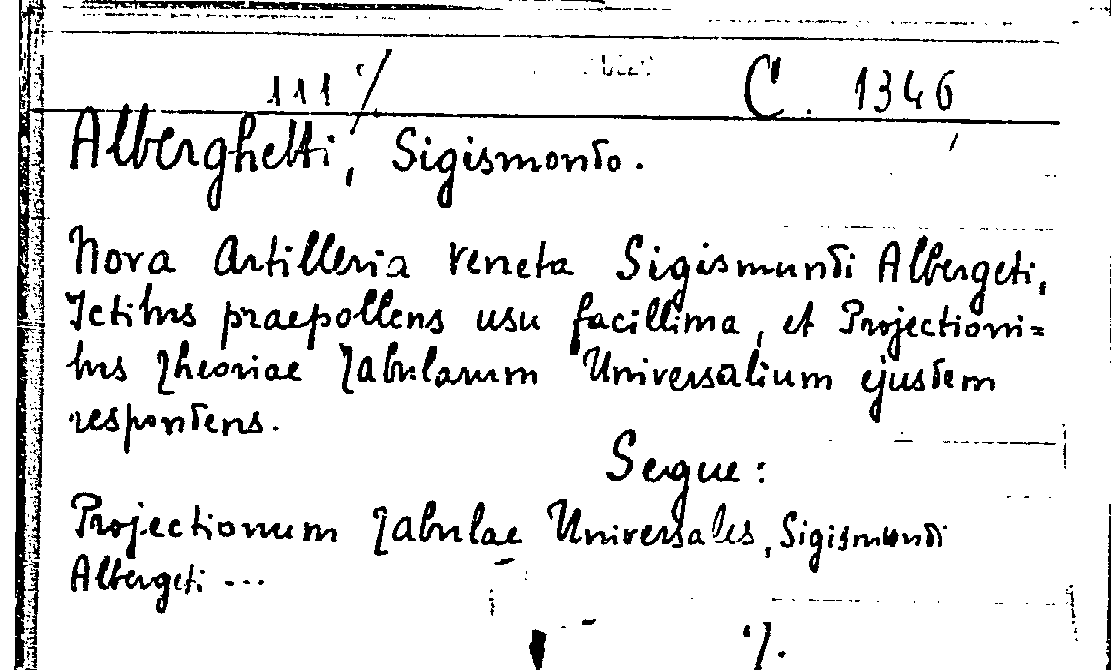 111 ·/. C. 1346
Alberghetti, Sigismondo.
Nova Artilleria veneta Sigismundi Albergeti,
Ictibus praepollens usu facillima, et Projectioni=
bus Theoriae Tabularum Universalium ejusdem
respondens.
Segue:
Projectionum Tabulae Universales, Sigismundi
Albergeti ...
·/.